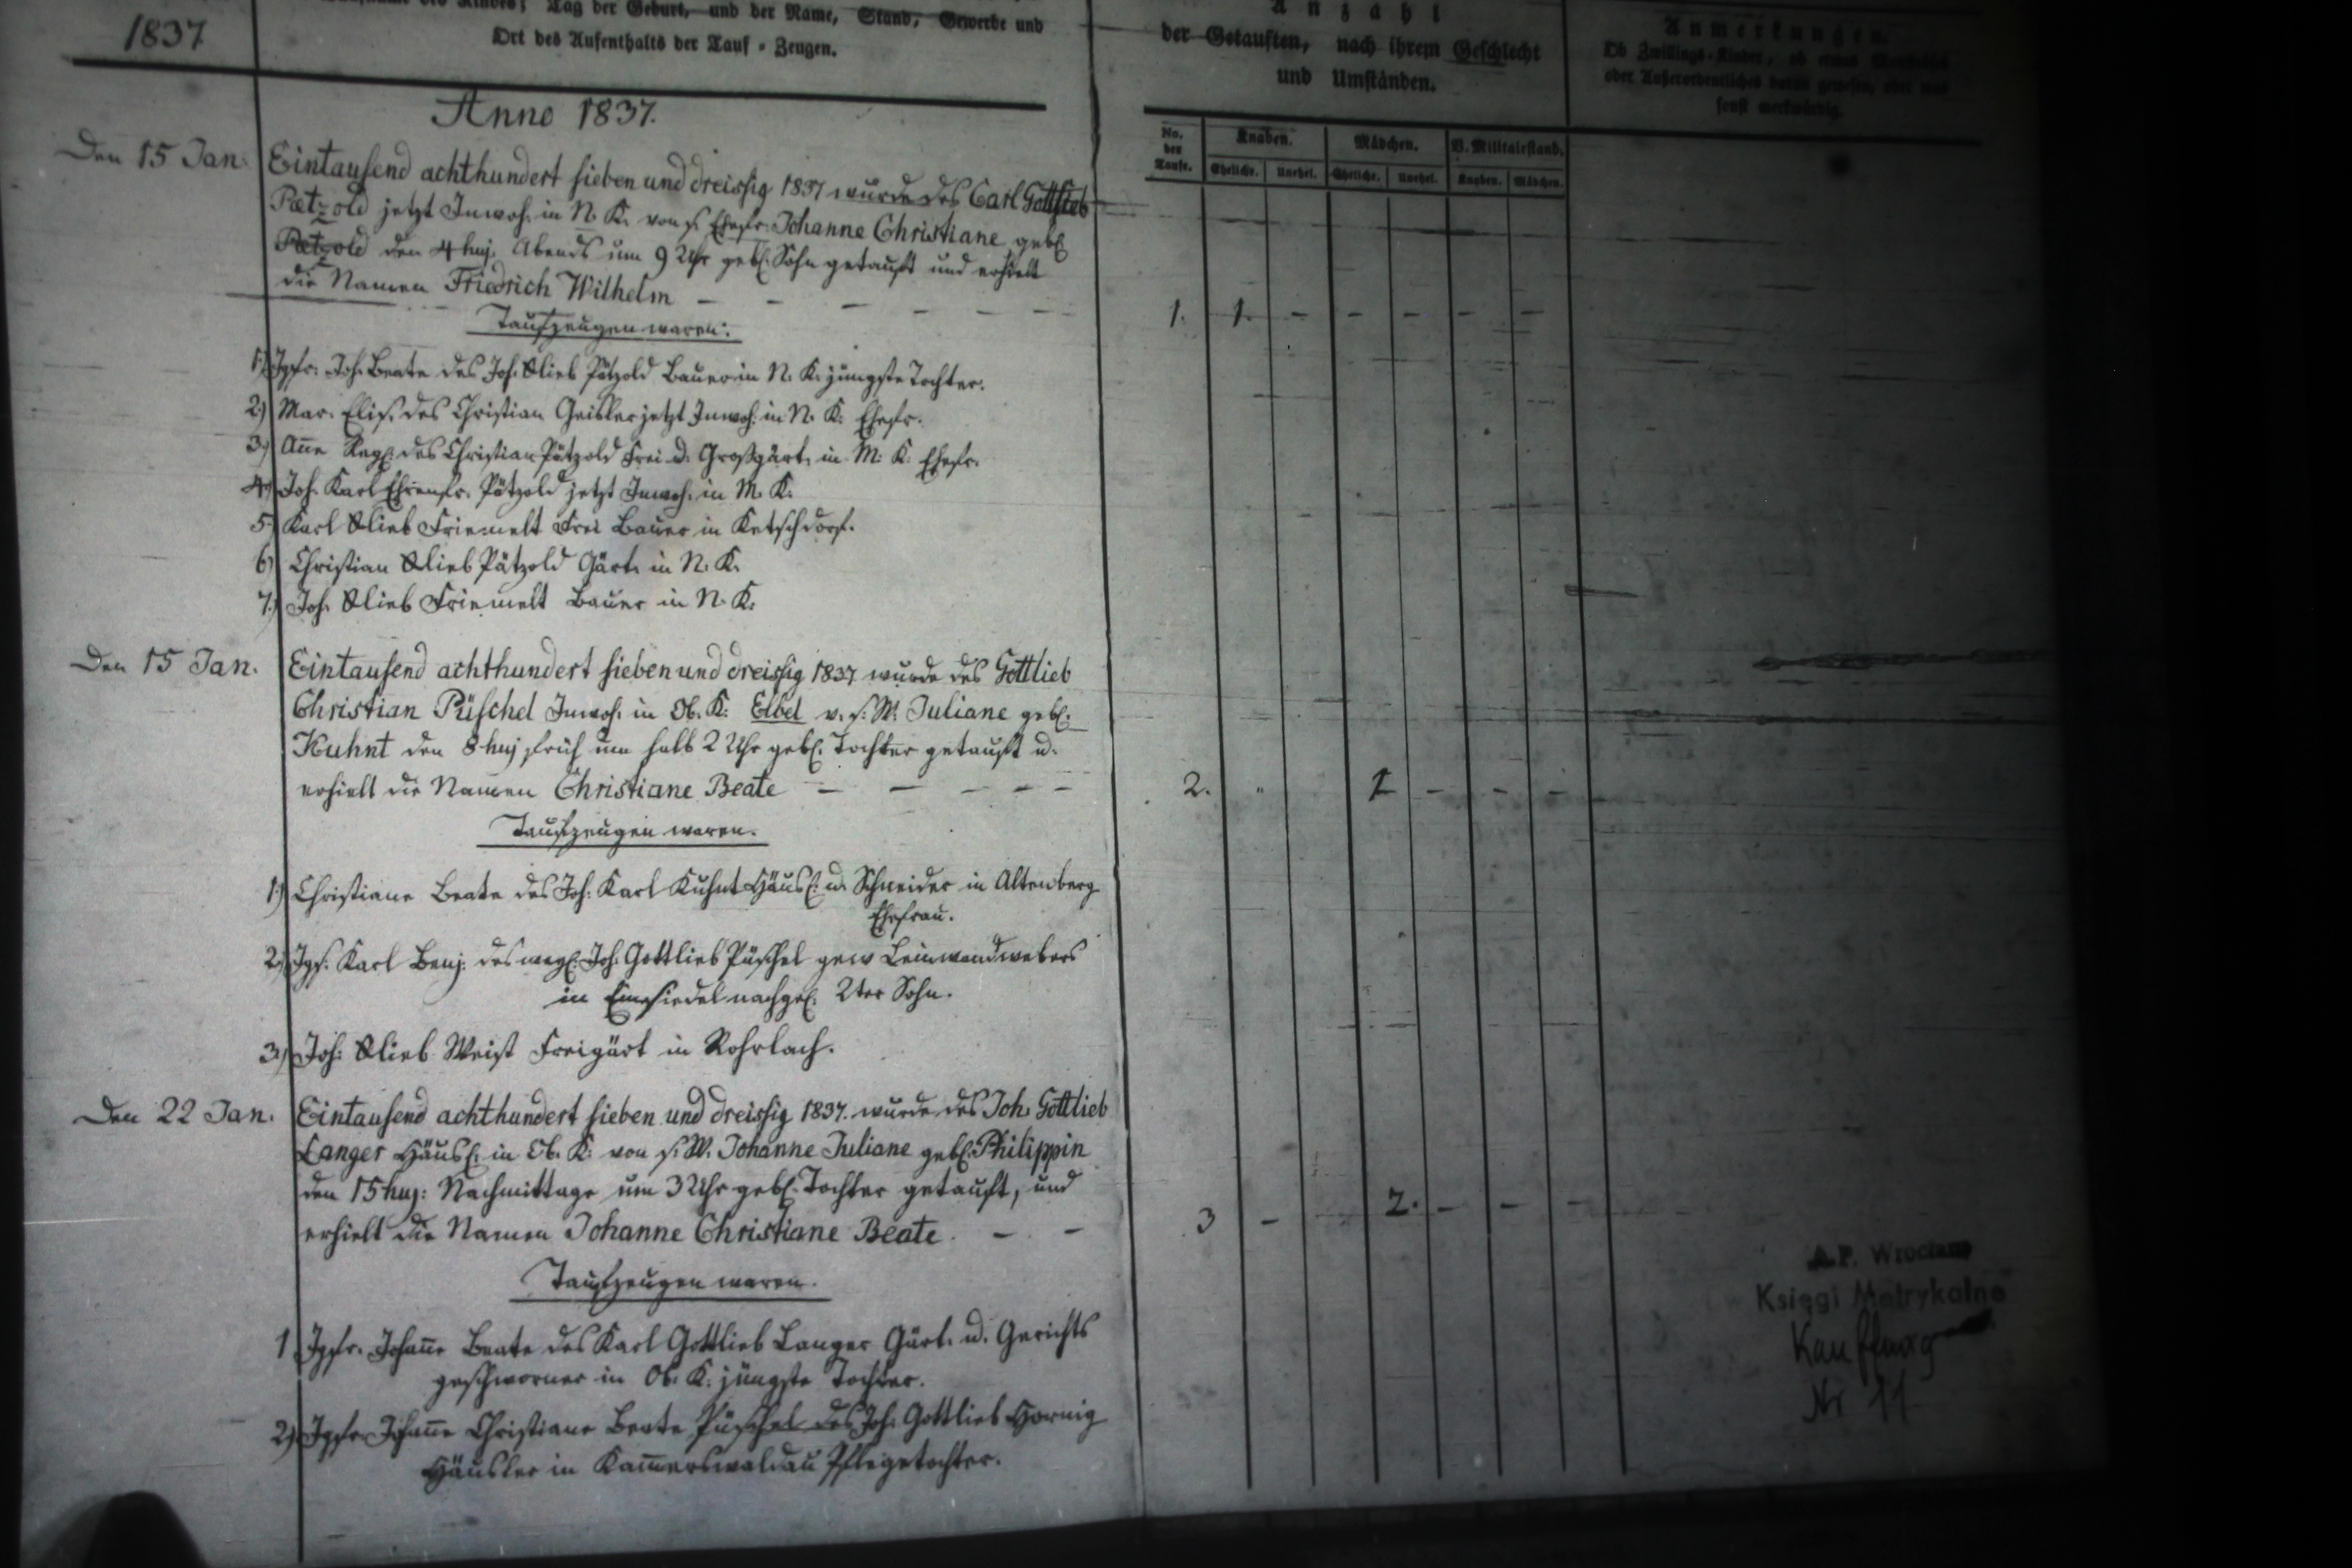 1837
Tag der Geburt, und der Name, Stand, Gewerbe und
Ort des Aufenthalts der Tauf-Zeugen.
Anzahl
der Getauften, nach ihrem Geschlecht
und Umständen.
Anmerkungen.
Ob Zwillings-Kinder, ob etwas
oder Außerordentliches dabei gewesen, oder was
sonst merkwürdig.
No. der Taufe.
Knaben. Mädchen. V. Militairstand.
Eheliche. Unehel. Eheliche. Unehel. Knaben. Mädchen.
Anno 1837.
Den 15 Jan. Eintausend achthundert sieben und dreissig 1837 wurde des Carl Gottlieb
Pætzold jetzt Inwoh. in N. K. von s. Ehefr. Johanne Christiane geb.
Pætzold den 4 huj. Abends um 9 Uhr geb. Sohn getauft und erhielt
die Namen Friedrich Wilhelm – – – – – –
1. 1. – – – – –
Taufzeugen waren:
1) Jgfr. Joh. Beate des Joh. Glieb Pätzold Bauer in N. K. jüngste Tochter.
2) Mar. Elis. des Christian Geisler jetzt Inwoh. in N. K. Ehefr.
3) Anne Reg. des Christian Pätzold Frei d. Großgärt. in M. K. Ehefr.
4) Joh. Karl Ehrenfr. Pätzold jetzt Inwoh. in M. K.
5) Karl Glieb Friemelt Frei Bauer in Ketschdorf.
6) Christian Glieb Pätzold Gärt. in N. K.
7.) Joh. Glieb Friemelt Bauer in N. K.
Den 15 Jan. Eintausend achthundert sieben und dreissig 1837 wurde des Gottlieb
Christian Püschel Inwoh. in Ob. K. Elbel v. s. W. Juliane geb.
Kuhnt den 8 huj früh um halb 2 Uhr geb. Tochter getauft u.
erhielt die Namen Christiane Beate – – – – –
2. " 1 – – –
Taufzeugen waren.
1.) Christiane Beate des Joh. Karl Kuhnt Häusl. u. Schneider in Altenberg
Ehefrau.
2.) Jgs. Karl Benj. des weyl. Joh. Gottlieb Püschel gew Leinwandwebers
in Einsiedel nachgel. 2ter Sohn.
3.) Joh. Glieb Weist Freigärt in Rohrlach.
Den 22 Jan. Eintausend achthundert sieben und dreissig 1837. wurde des Joh. Gottlieb
Langer Häusl. in Ob. K. von s. W. Johanne Juliane geb. Philippin
den 15 huj. Nachmittags um 3 Uhr geb. Tochter getauft, und
erhielt die Namen Johanne Christiane Beate. – –
3 – 2. – – –
Taufzeugen waren.
1 Jgfr. Johanne Beate des Karl Gottlieb Langer Gärt. u. Gerichts
geschworner in Ob. K. jüngste Tochter.
2) Jgfr Johanne Christiane Beate Püschel des Joh. Gottlieb Hornig
Häusler in Kammerswaldau Pflegetochter.
A.P. Wrocław
Księgi Metrykalne
Kauffung
Nr 11